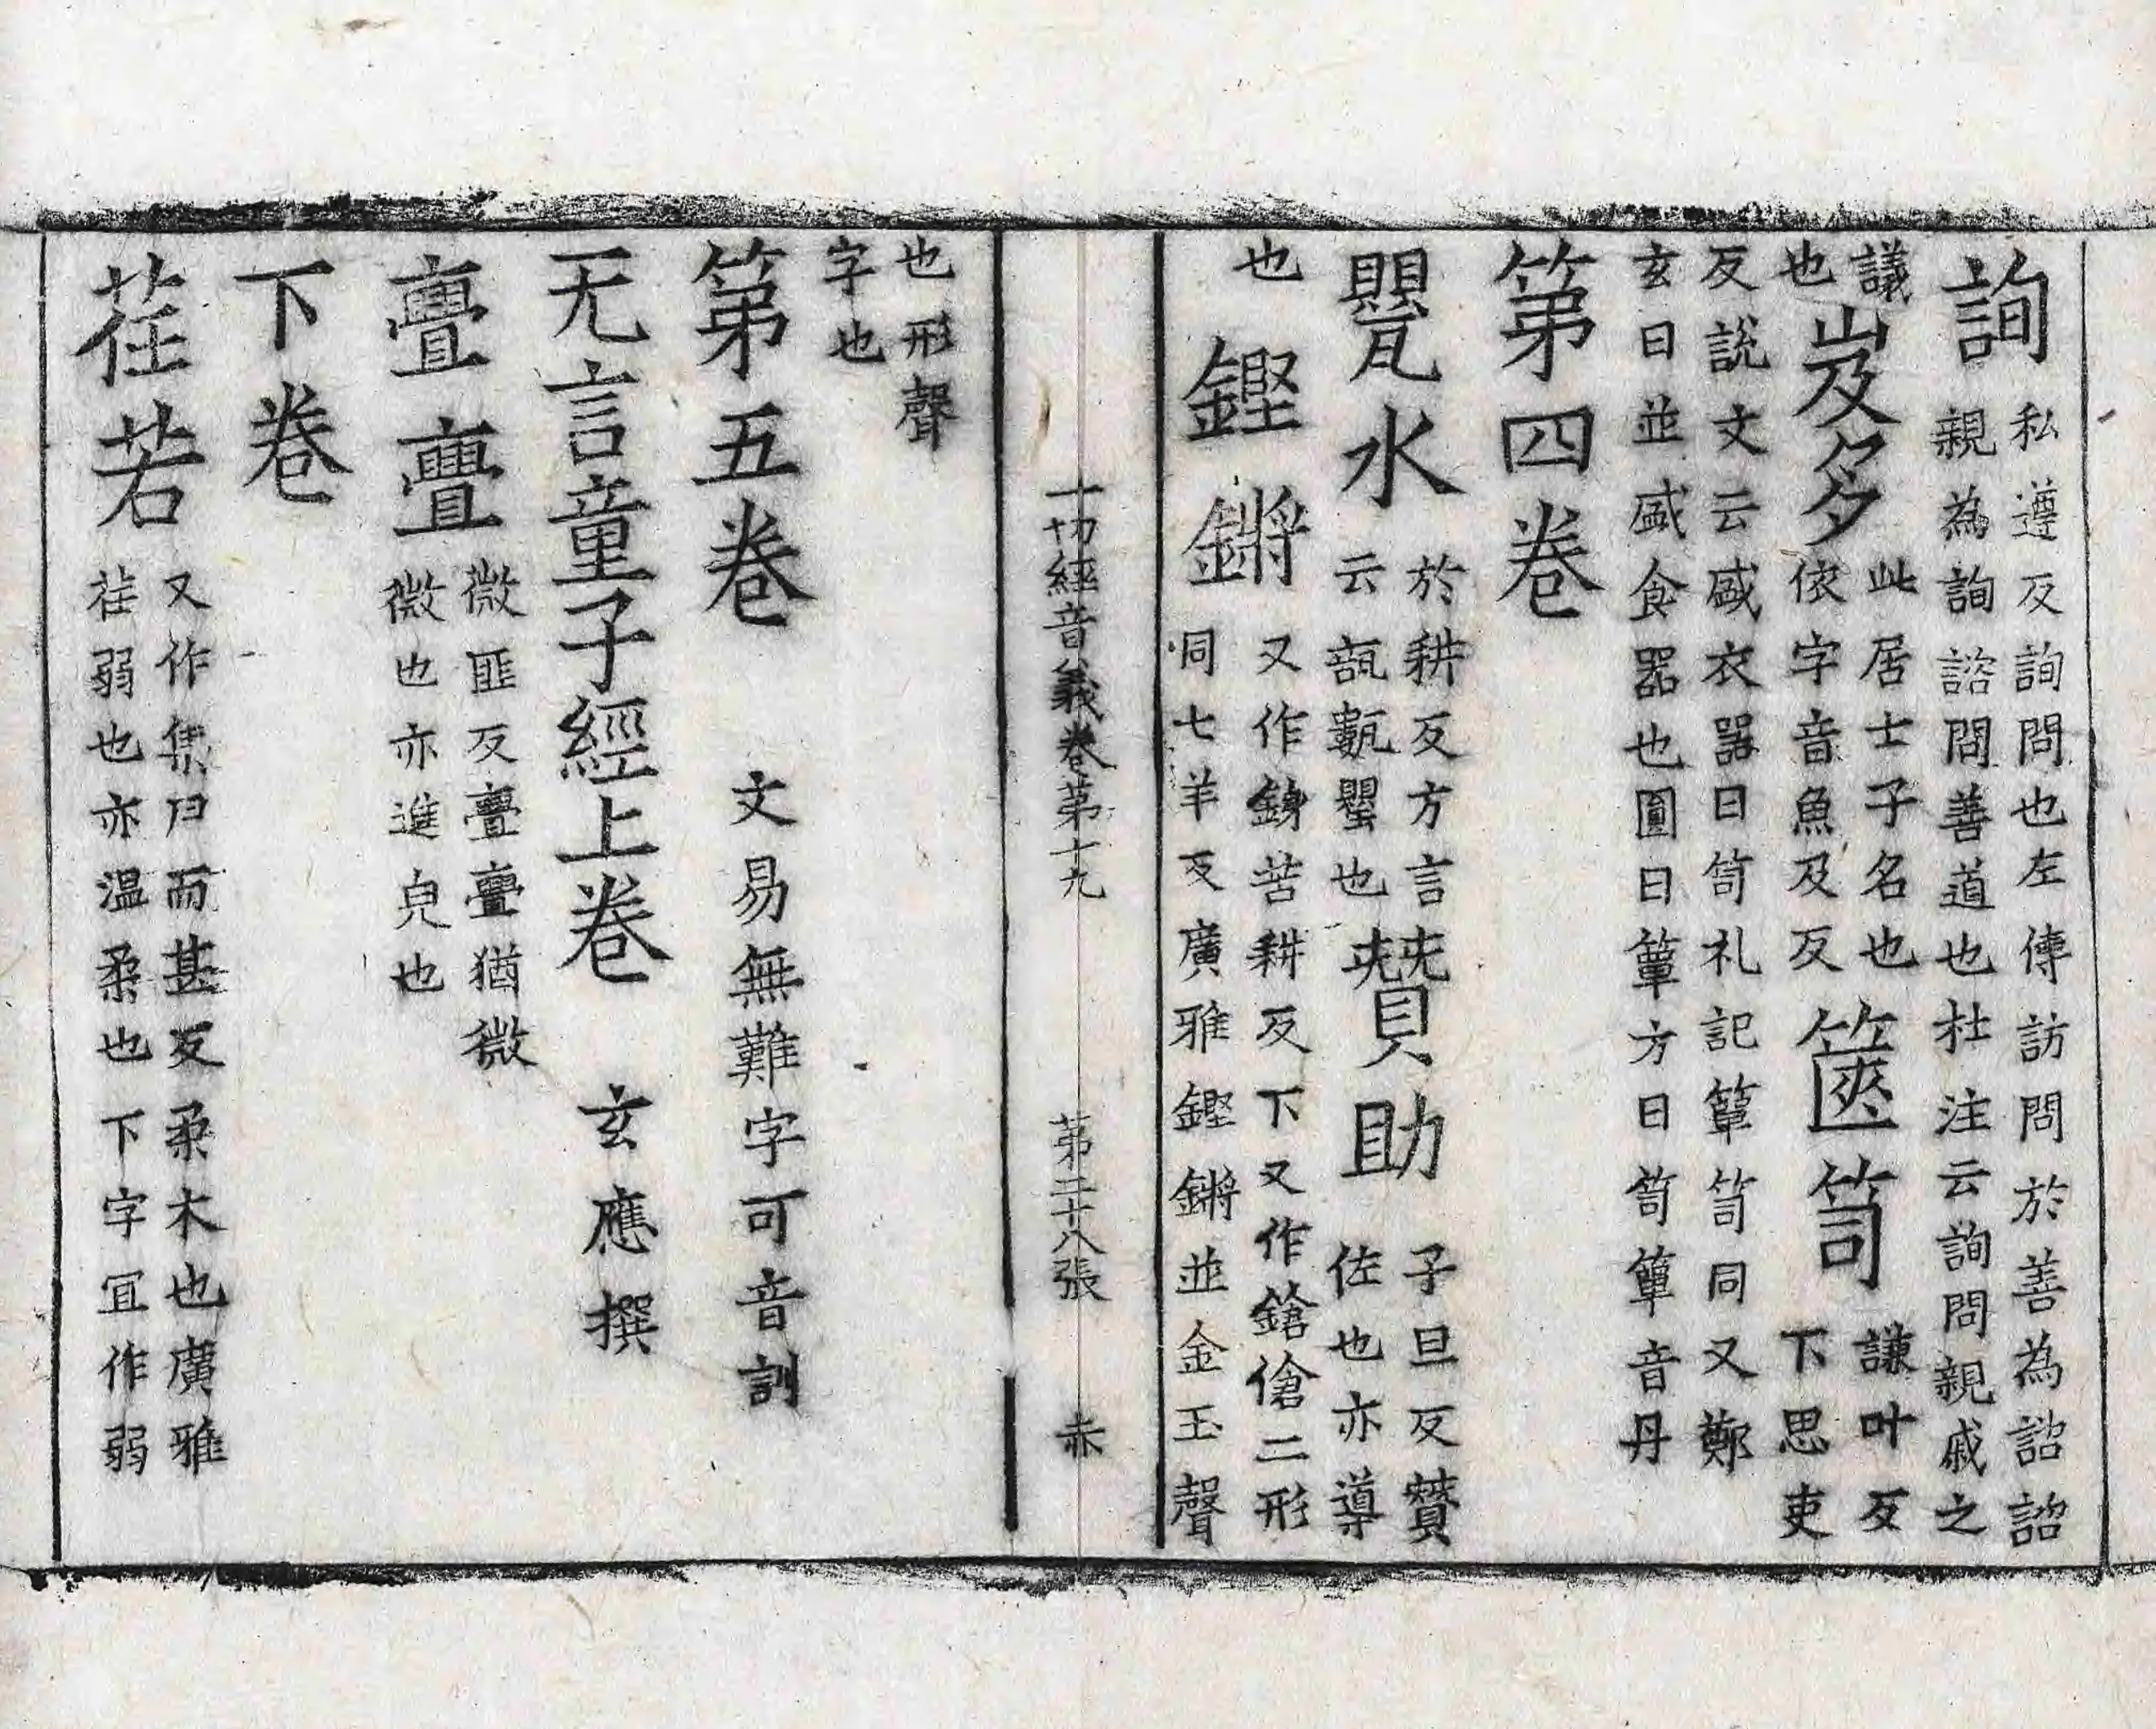 詢私遵反詢問也左傳訪問於善為諮諮
親為詢諮問善道也杜注云詢問親戚之
議
也岌多此居士子名也
依字音魚及反篋笥謙叶反
下思吏
反說文云盛衣器曰笥礼記簞笥同又鄭
玄曰並盛食器也圓曰簞方曰笥簞音丹
第四卷
甖水於耕反方言
云瓿甊甖也賛助子旦反賛
佐也亦導
也鏗鏘又作銵苦耕反下又作鎗傖二形
同七羊反廣雅鏗鏘並金玉聲
一切經音義卷第十九 第二十八張 赤
也形聲
字也
第五卷 文易無難字可音訓
无言童子經上卷 玄應撰
亹亹微匪反亹亹猶微
微也亦進皃也
下卷
荏若又作集同而甚反柔木也廣雅
荏弱也亦温柔也下字冝作弱